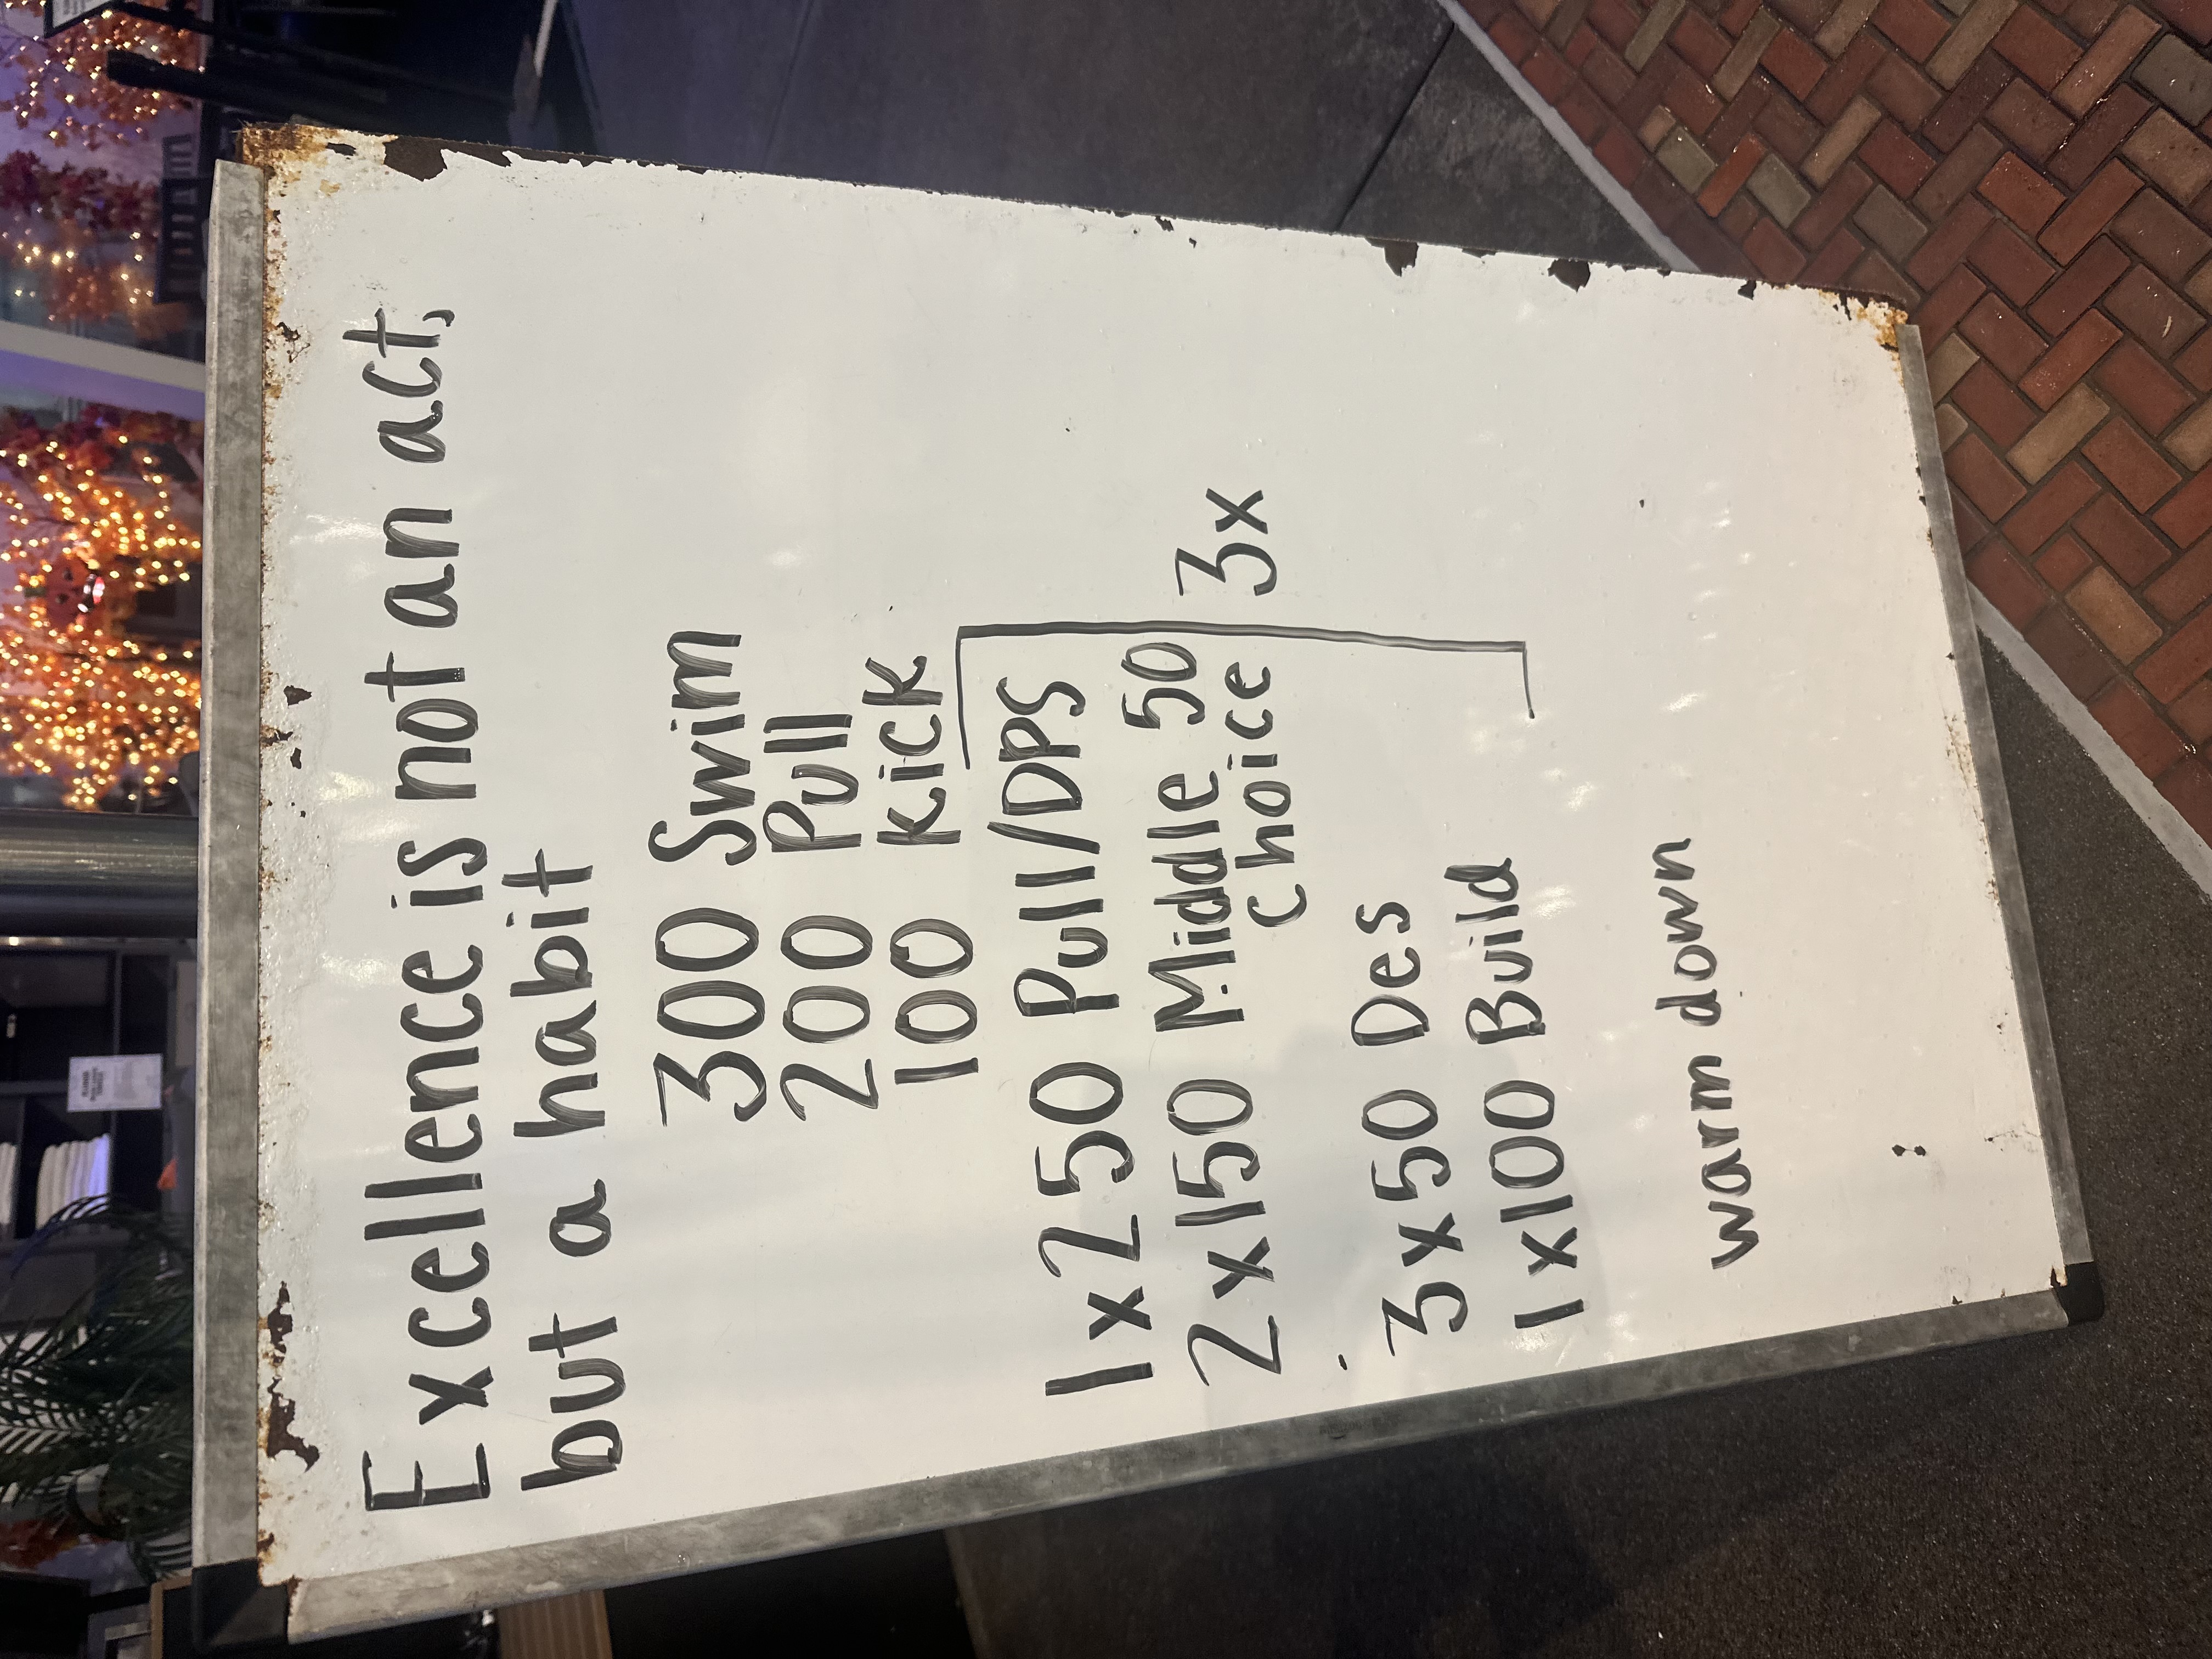 Excellence is not an act,
but a habit
300 Swim
200 Pull
100 Kick
1x250 Pull/DPS
2x150 Middle 50
Choice
3x
3x50 Des
1x100 Build
warm down